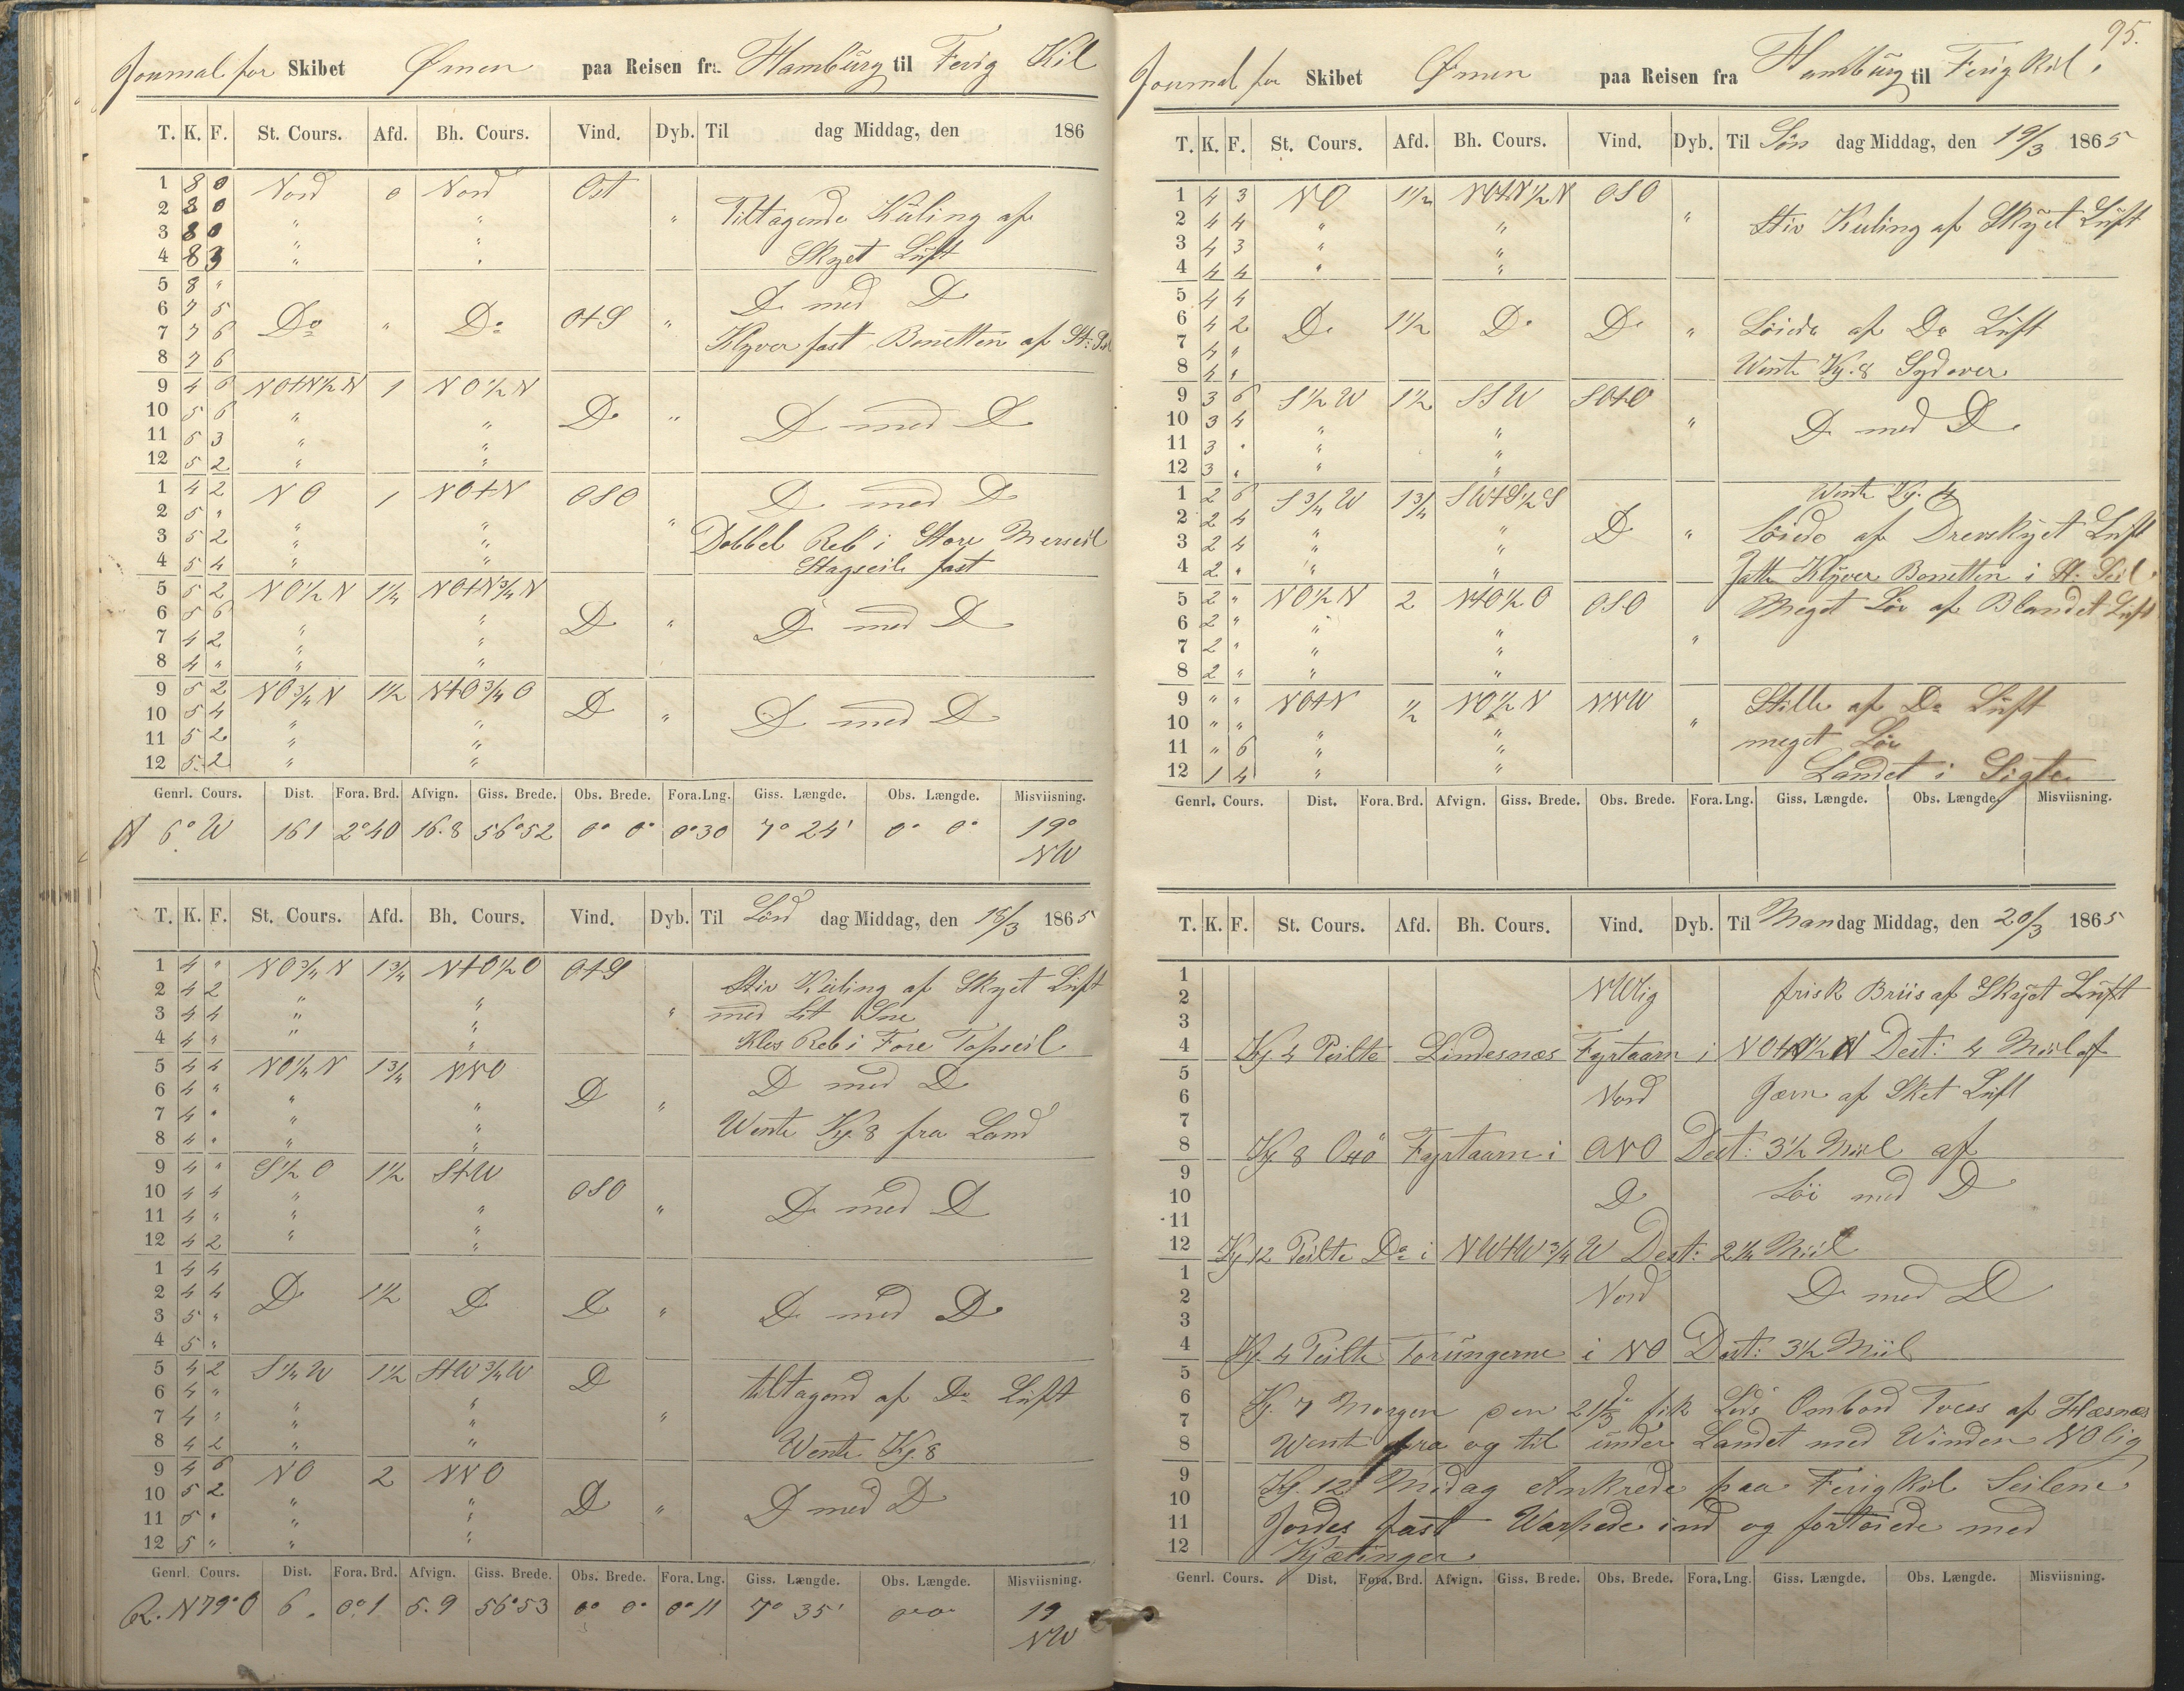 Journal for Skibet Ørnen paa Reisen fra Hamburg til Ferig Kil
T. K. F. St. Cours. Afd. Bh. Cours. Vind. Dyb. Til dag Middag, den 186
1 8 0 Nord 0 Nord Ost
2 8 0 " " " Tiltagende Kuling af
3 8 0 " "
4 8 3 " " Skyet Luft
5 8 " D med D
6 7 5 Do " Do O+S "
7 7 6 Klyver fast Bonetten af St: Seil
8 7 6
9 4 6 NO+N½N 1 NO½N
10 5 6 " " Do " D med D
11 5 3 " "
12 5 2 " "
1 4 2 NO 1 NO+N OSO D med D
2 5 " " " "
3 5 2 " " Dobbel Reb i Store Merseil
4 5 4 " " Stagseile fast
5 5 2 NO½N 1¼ NO+N¾N
6 5 6 " " D " D med D
7 4 2 " "
8 4 " " "
9 5 2 NO¾N 1½ N+O¾O
10 5 4 " " D " D med D
11 5 2 " "
12 5 2 " "
Genrl. Cours. Dist. Fora. Brd. Afvign. Giss. Brede. Obs. Brede. Fora. Lng. Giss. Længde. Obs. Længde. Misviisning.
N 6° W 161 2°40 16.8 56°52 0° 0° 0°30 7° 24' 0° 0° 19°
NW
T. K. F. St. Cours. Afd. Bh. Cours. Vind. Dyb. Til Lør dag Middag, den 18/3 1865
1 4 " NO¾N 1¾ N+O½O O+S Stiv Kuling af Skyet Luft
2 4 2 " "
3 4 4 " " " med Lit Sne
4 4 " " " Klos Reb i Fore Topseil
5 4 4 NO¼N 1¾ NNO D med D
6 4 " " D "
7 4 " " " Wente Kj. 8 fra Land
8 4 " " "
9 4 " S½O 1½ S+W
10 4 4 " OSO D med D
11 4 " " " "
12 4 2 " "
1 4 4
2 4 4 D 1½ D D " D med D
3 5 "
4 5 "
5 4 2 S¼W 1½ S+W¾W D tiltagend af Do Luft
6 4 " " "
7 4 " " " "
8 4 2 " " Wente Kj. 8
9 4 6 NO 2 NNO
10 5 2 " " D " D med D
11 5 " " "
12 5 " " "
Genrl. Cours. Dist. Fora. Brd. Afvign. Giss. Brede. Obs. Brede. Fora. Lng. Giss. Længde. Obs. Længde. Misviisning.
R. N79°O 6. 0°1 5.9 56°53 0° 0° 0°11 7° 35' 0°0° 19
NW
95.
Journal for Skibet Ørnen paa Reisen fra Hamburg til Ferig Kiil.
T. K. F. St. Cours. Afd. Bh. Cours. Vind. Dyb. Til Søn dag Middag, den 19/3 1865
1 4 3 NO 1½ NO+N½N OSO
2 4 4 " " " Stiv Kuling af Skyet Luft
3 4 3 " "
4 4 4 " "
5 4 4
6 4 2 D. 1½ D. D. " Løiede af Do Luft
7 4 "
8 4 " Wente Kj. 8 Sydover
9 3 6 S½W 1½ SSW SO+O
10 3 4 " " " D med D.
11 3 " " "
12 3 " " "
1 2 6 S¾W 1¾ SW+S½S Wente Kj. 4
2 2 4 " "
3 2 4 " " D " Løiede af Drevskyet Luft
4 2 " " " Satte Klyver Bonetten i St. Seil
5 2 " NO½N 2 N+O½O OSO Meget Løi af Blandet Luft
6 2 " " "
7 2 " " " "
8 2 " " "
9 " " NO+N ½ NO½N NNW Stille af Do Luft
10 " " " " "
11 " 6 " " meget Løi
12 1 4 " " Landet i Sigte
Genrl. Cours. Dist. Fora. Brd. Afvign. Giss. Brede. Obs. Brede. Fora. Lng. Giss. Længde. Obs. Længde. Misviisning.
T. K. F. St. Cours. Afd. Bh. Cours. Vind. Dyb. Til Man dag Middag, den 20/3 1865
1
2 NWlig frisk Briis af Skyet Luft
3
4 Kj 4 Peilte Lindesnæs Fyrtaarn i NO+N½N Dest: 4 Miil af
5
6 Nord Jævn af Sket Luft
7
8 Kj 8 Oxö Fyrtaarn i ONO Dest: 3½ Miil af
9
10 D Löi med D
11
12 Kj 12 Peilte Do i NW+W¾W Dest: 2¼ Miil
1
2 Nord D med D
3
4 Kj. 4 Peilte Torungerne i NO Dest: 3½ Miil
5
6 Kj. 7 Morgen den 21/3 fik Lods Ombord Toves af Hæsnæs
7
8 Wente fra og til under Landet med Winden NOlig
9 Kj. 12 Midag Ankrede paa Ferigkiil Seilene
10
11 Jordes fast Warpede ind og fortøiede med
12 Kjætinger
Genrl. Cours. Dist. Fora. Brd. Afvign. Giss. Brede. Obs. Brede. Fora. Lng. Giss. Længde. Obs. Længde. Misviisning.